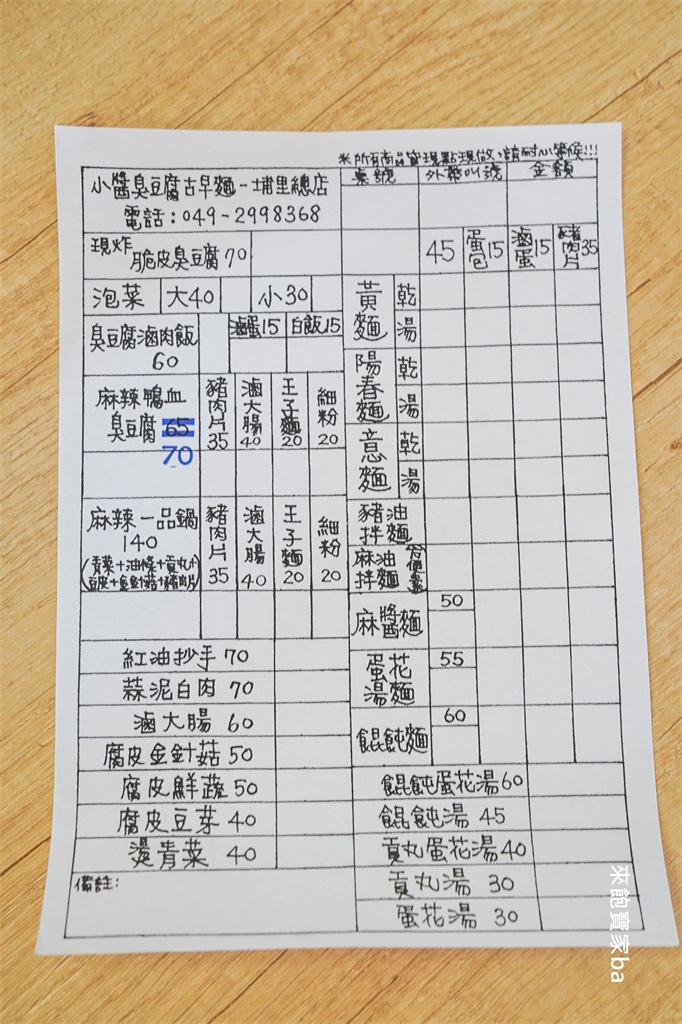 ※所有商品皆現點現做,請耐心等候!!!
小醬臭豆腐古早麵-埔里總店
電話:049-2998368
桌號 外帶叫號 金額
現炸脆皮臭豆腐70
泡菜 大40 小30
臭豆腐滷肉飯 滷蛋15 白飯15
60
麻辣鴨血
臭豆腐 65
70
豬肉片35 滷大腸40 王子麵20 細粉20
麻辣一品鍋
140
(青菜+油條+貢丸+
豆皮+金針菇+豬肉片)
豬肉片35 滷大腸40 王子麵20 細粉20
紅油抄手 70
蒜泥白肉 70
滷大腸 60
腐皮金針菇 50
腐皮鮮蔬 50
腐皮豆芽 40
燙青菜 40
備註:
45 蛋包15 滷蛋15 豬肉片35
黃麵 乾
湯
陽春麵 乾
湯
意麵 乾
湯
豬油
拌麵
麻油
拌麵
麻醬麵 50
蛋花
湯麵 55
餛飩麵 60
餛飩蛋花湯60
餛飩湯 45
貢丸蛋花湯40
貢丸湯 30
蛋花湯 30
來飽寶家ba